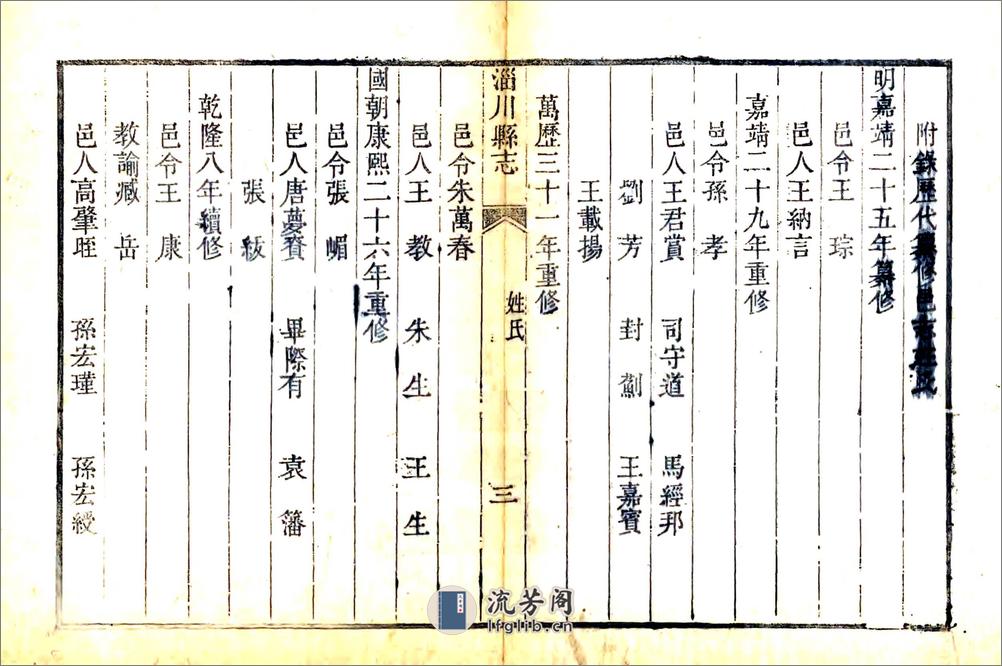 附錄歷代纂修邑志姓氏
明嘉靖二十五年纂修
邑令王　琮
邑人王納言
嘉靖二十九年重修
邑令孫　孝
邑人王君賞　司守道　馬經邦
劉　芳　封　　王嘉賓
王載揚
萬歷三十一年重修
淄川縣志　姓氏　三
邑令朱萬春
邑人王　教　朱　生　王　生
國朝康熙二十六年重修
邑令張　嵋
邑人唐夢賚　畢際有　袁　藩
張　紱
乾隆八年續修
邑令王　康
教諭臧　岳
邑人高肇　　孫宏瑾　孫宏綬
流芳阁
lfglib.cn